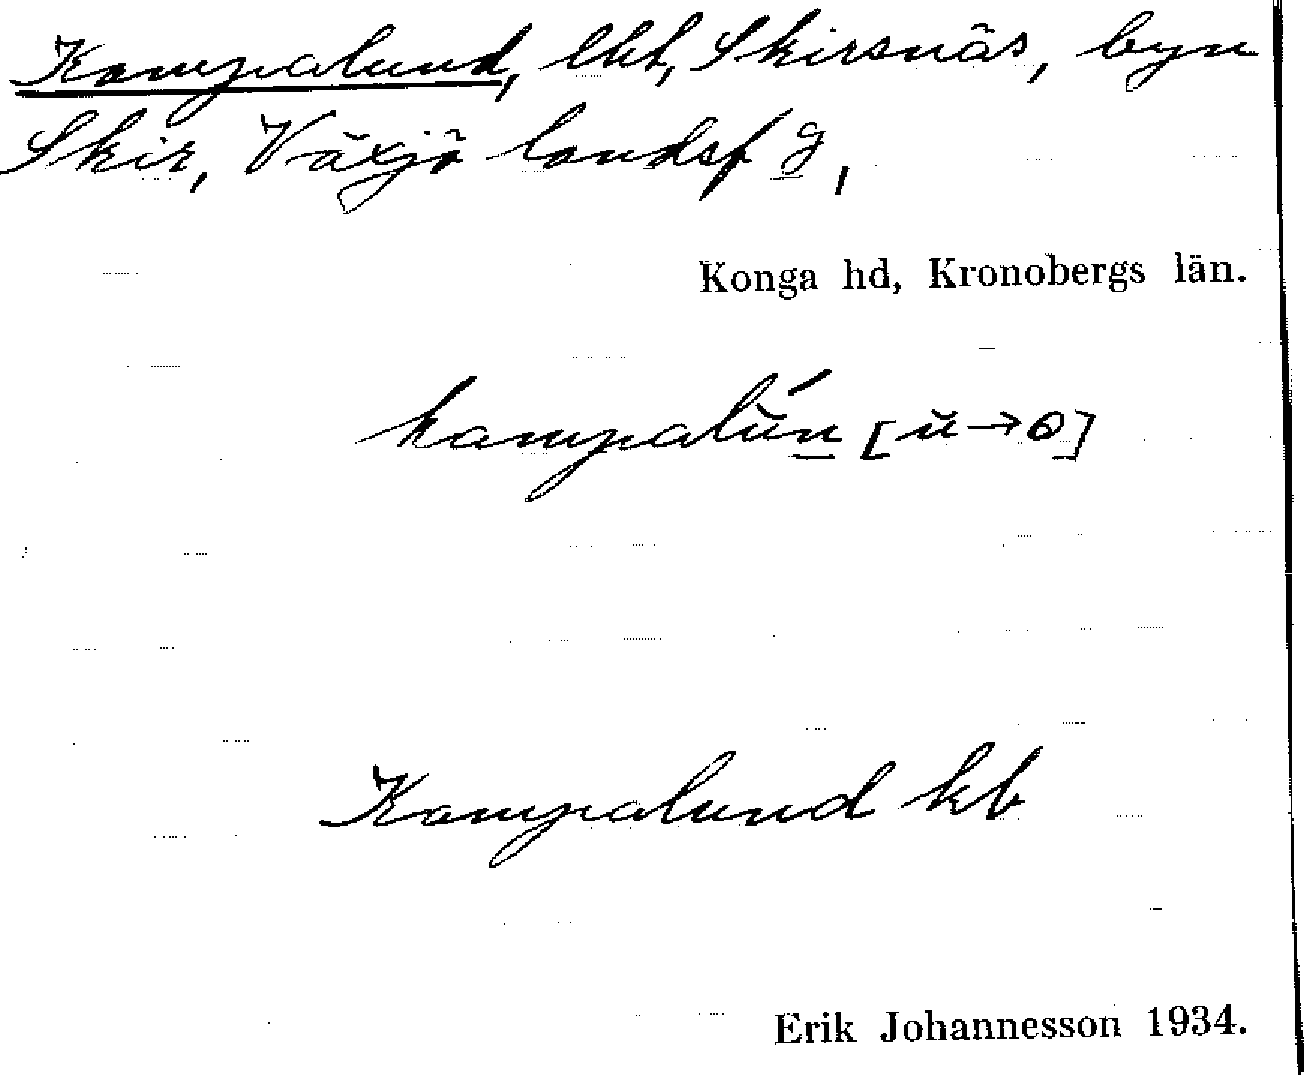 Kampalund, lht, Skirsnäs, byn
Skir, Växjö landsf g,
Konga hd, Kronobergs län.
kampalún [ŭ→ɵ]
Kampalund kb
Erik Johannesson 1934.